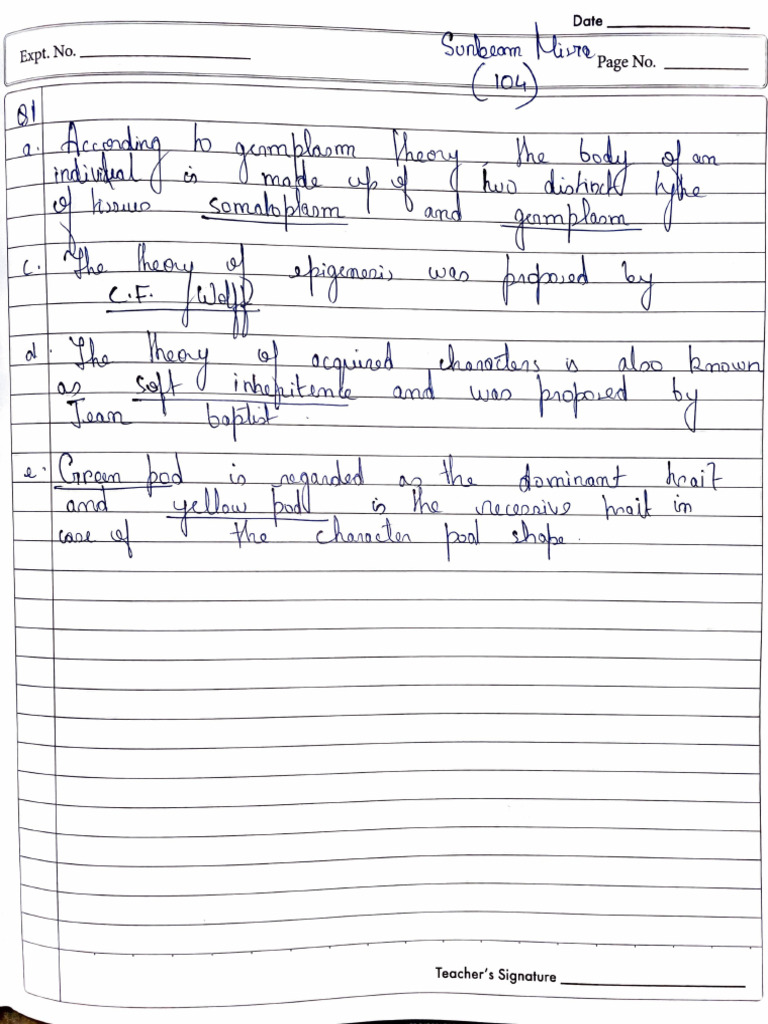 Date
Expt. No.
Sunbeam Misra
Page No.
(104)
Q1
a. According to germplasm theory, the body of an
individual is made up of two distinct type
of tissues somatoplasm and germplasm
c. The theory of epigenesis was proposed by
C.F. Wolff
d. The theory of acquired characters is also known
as soft inheritence and was proposed by
Jean baptist.
e. Green pod is regarded as the dominant trait
and yellow pod is the recessive trait in
case of the character pod shape.
Teacher's Signature